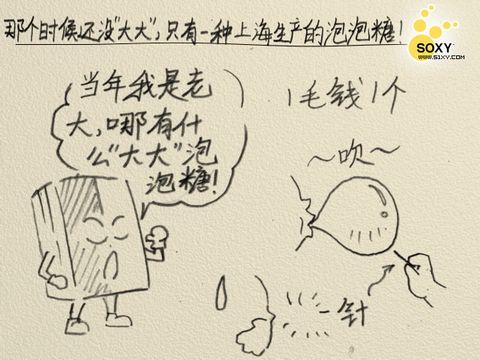 那个时候还没"大大",只有一种上海生产的泡泡糖!
SOXY
www.51XY.com
当年我是老
大,哪有什
么"大大"泡
泡糖!
1毛钱1个
~吹~
一针